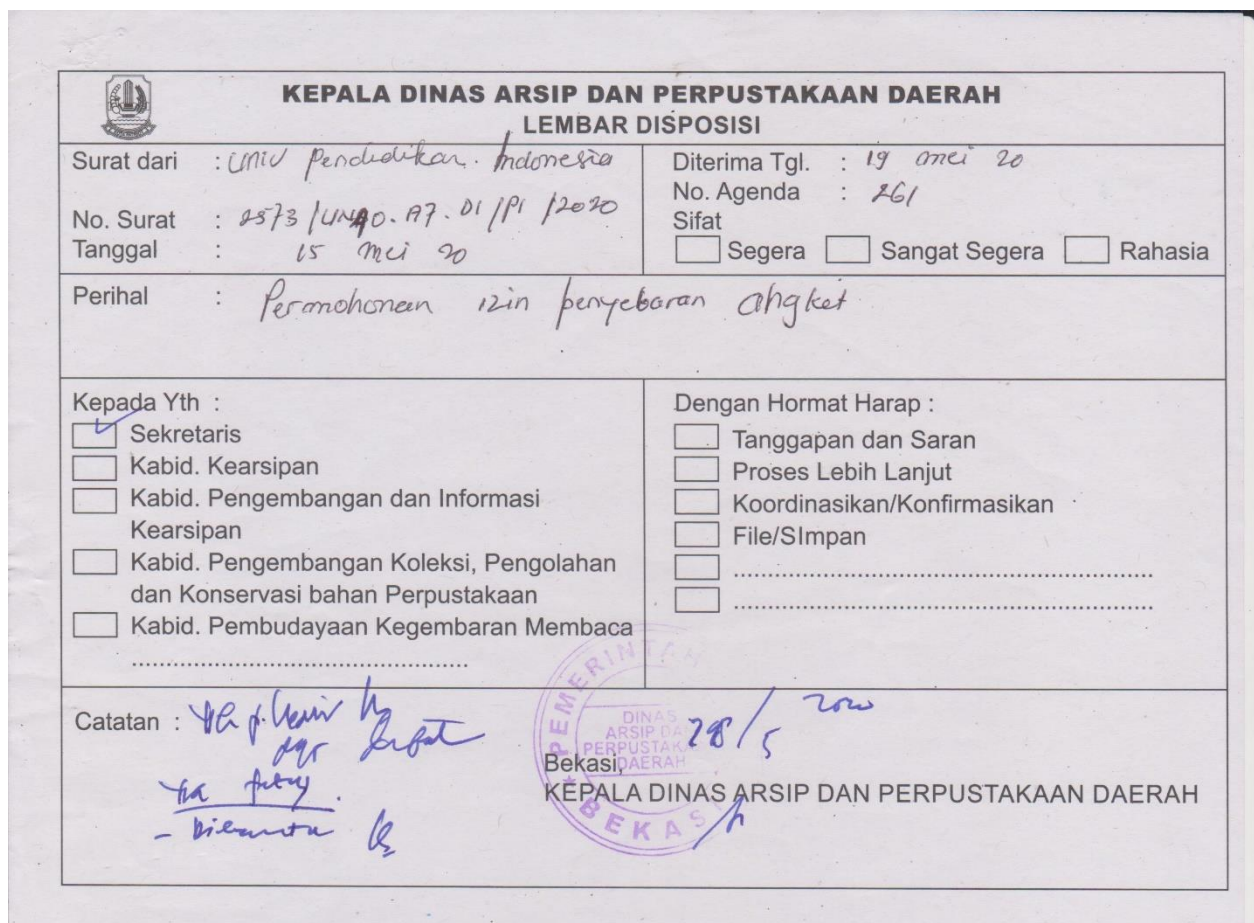 KEPALA DINAS ARSIP DAN PERPUSTAKAAN DAERAH
LEMBAR DISPOSISI
Surat dari : Univ Pendidikan Indonesia
No. Surat : 2573/UN40.A7.D1/PI/2020
Tanggal : 15 Mei 20
Diterima Tgl. : 19 Mei 20
No. Agenda : 261
Sifat
Segera Sangat Segera Rahasia
Perihal : Permohonan izin penyebaran angket
Kepada Yth :
Sekretaris
Kabid. Kearsipan
Kabid. Pengembangan dan Informasi
Kearsipan
Kabid. Pengembangan Koleksi, Pengolahan
dan Konservasi bahan Perpustakaan
Kabid. Pembudayaan Kegembaran Membaca
................................................
Dengan Hormat Harap :
Tanggapan dan Saran
Proses Lebih Lanjut
Koordinasikan/Konfirmasikan
File/SImpan
............................................................
............................................................
Catatan :
- Dibantu
PEMERINTAH
DINAS
ARSIP DAN
PERPUSTAKAAN
DAERAH
BEKASI
28/5 2020
Bekasi,
KEPALA DINAS ARSIP DAN PERPUSTAKAAN DAERAH